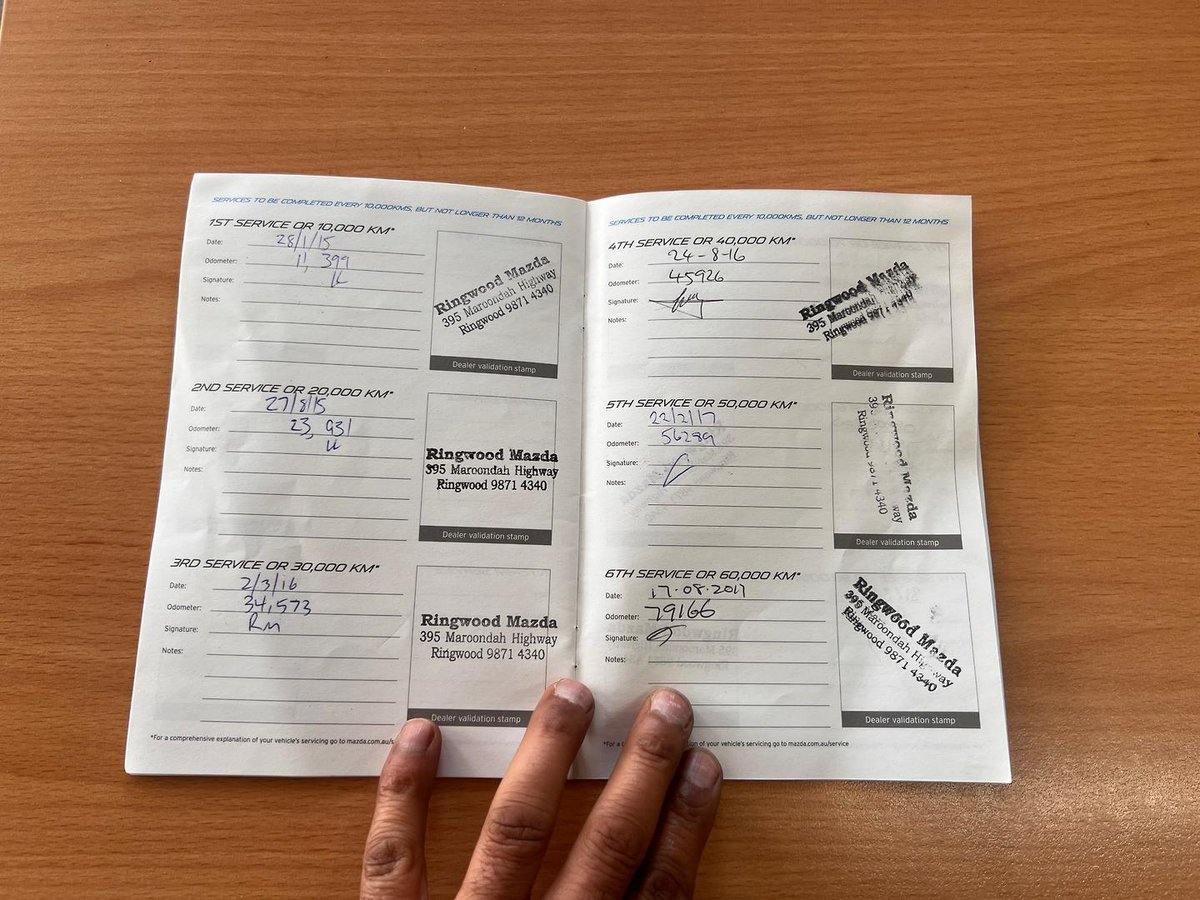 SERVICES TO BE COMPLETED EVERY 10,000KMS, BUT NOT LONGER THAN 12 MONTHS
1ST SERVICE OR 10,000 KM*
Date: 28/1/15
Odometer: 11,399
Signature:
Notes:
Ringwood Mazda
395 Maroondah Highway
Ringwood 9871 4340
Dealer validation stamp
2ND SERVICE OR 20,000 KM*
Date: 27/8/15
Odometer: 23,931
Signature:
Notes:
Ringwood Mazda
395 Maroondah Highway
Ringwood 9871 4340
Dealer validation stamp
3RD SERVICE OR 30,000 KM*
Date: 2/3/16
Odometer: 34,573
Signature: RM
Notes:
Ringwood Mazda
395 Maroondah Highway
Ringwood 9871 4340
Dealer validation stamp
*For a comprehensive explanation of your vehicle's servicing go to mazda.com.au/s
SERVICES TO BE COMPLETED EVERY 10,000KMS, BUT NOT LONGER THAN 12 MONTHS
4TH SERVICE OR 40,000 KM*
Date: 24-8-16
Odometer: 45926
Signature:
Notes:
Ringwood Mazda
395 Maroondah Highway
Ringwood 9871 4340
Dealer validation stamp
5TH SERVICE OR 50,000 KM*
Date: 22/2/17
Odometer: 56289
Signature:
Notes:
Ringwood Mazda
39 way
Ringwood 9871 4340
Dealer validation stamp
6TH SERVICE OR 60,000 KM*
Date: 17.08.2017
Odometer: 79166
Signature:
Notes:
Ringwood Mazda
395 Maroondah Highway
Ringwood 9871 4340
Dealer validation stamp
*For a nation of your vehicle's servicing go to mazda.com.au/service